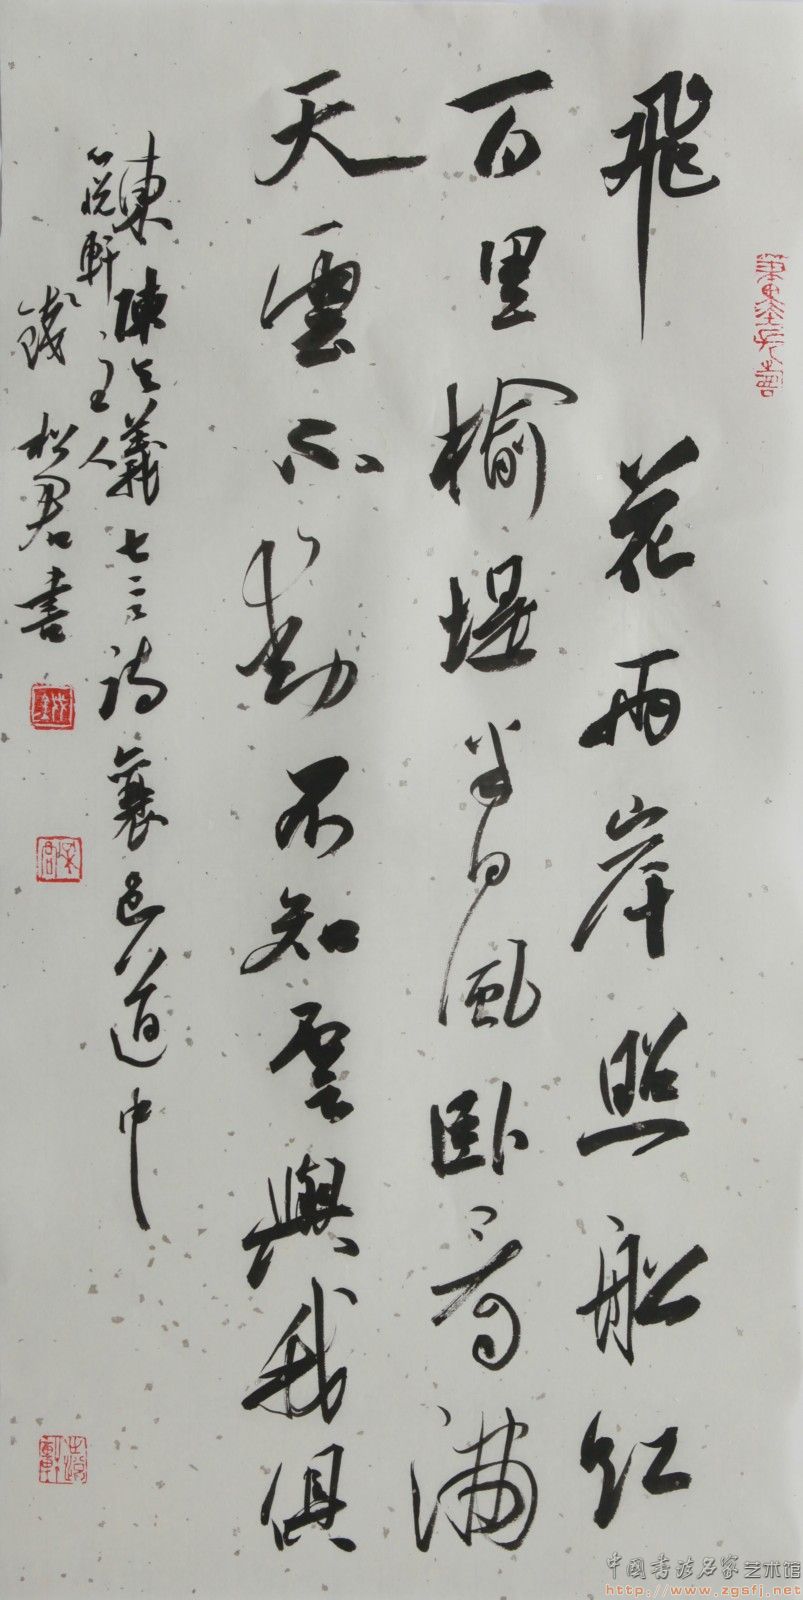 飛花兩岸照船紅
百里榆堤半日風卧看滿
天雲不動不知雲與我俱
東 陳与義七言詩襄邑道中
悦軒主人
錢松君書
中國书法名家艺术馆
http://www.zgsfj.net